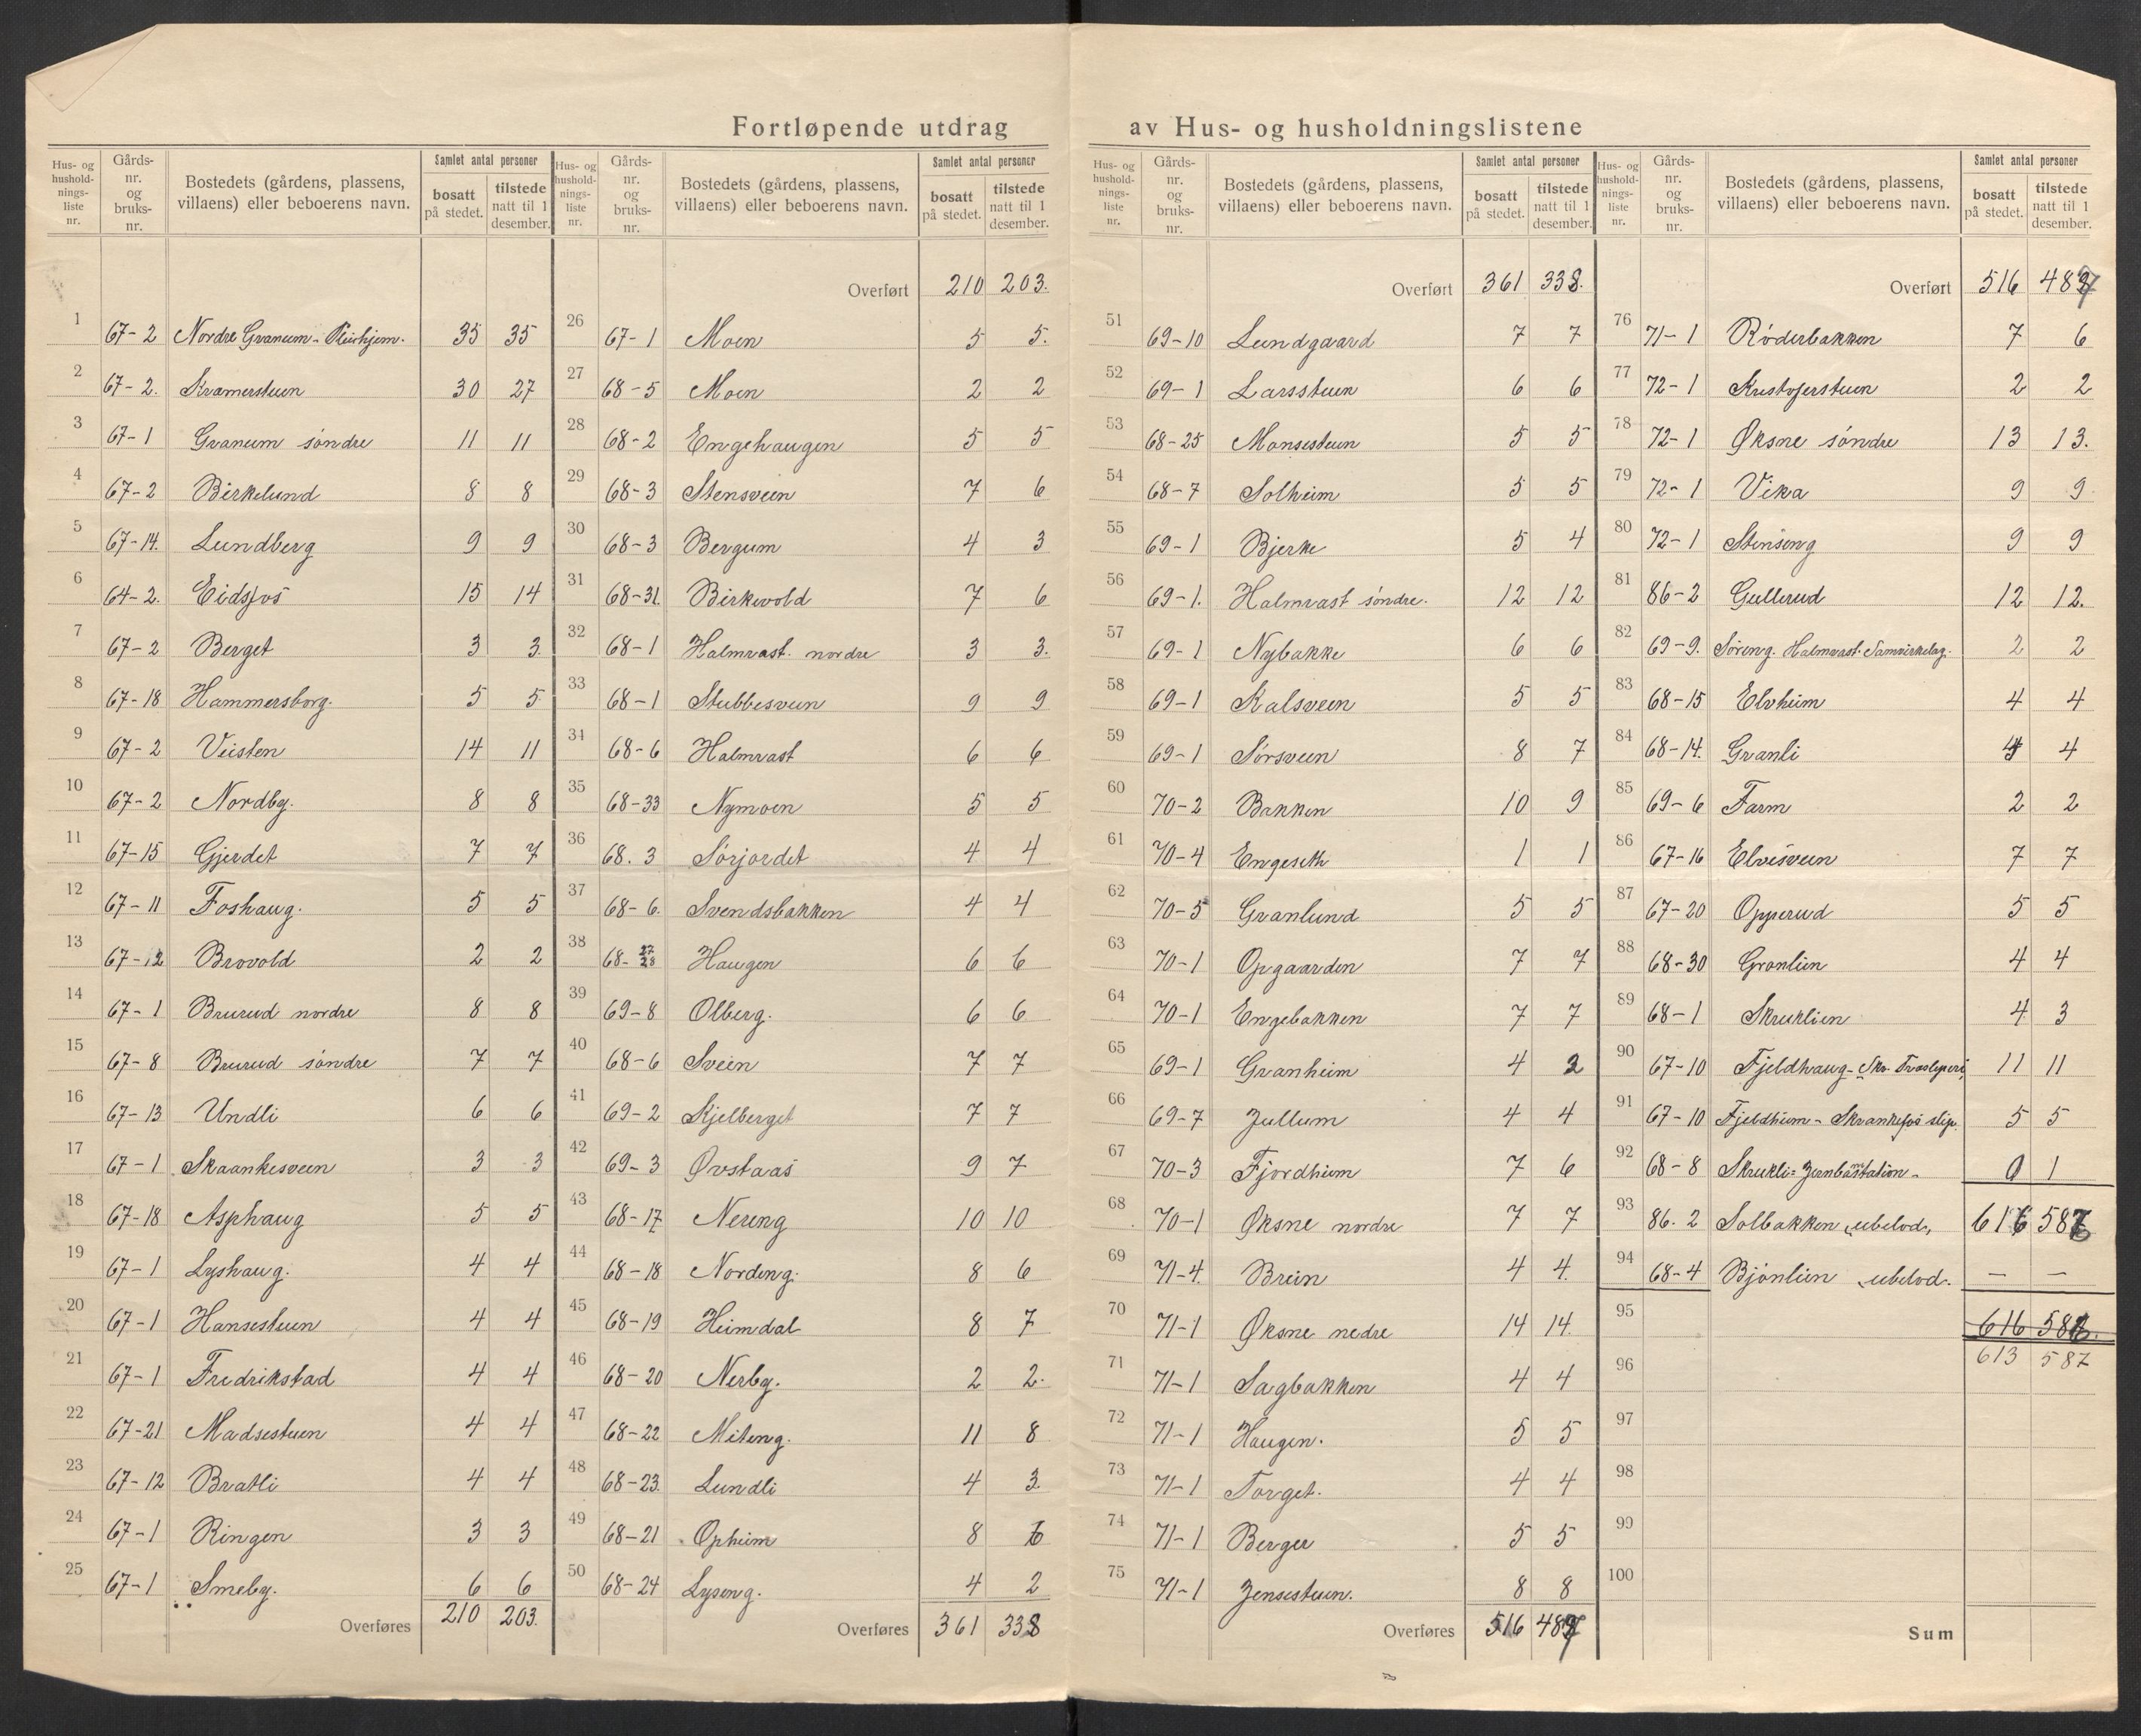 Fortløpende utdrag av Hus- og husholdningslistene
Hus- og husholdnings-liste nr. Gårds-nr. og bruks-nr. Bostedets (gårdens, plassens, villaens) eller beboerens navn. Samlet antal personer bosatt på stedet. tilstede natt til 1 desember.
1 67-2 Nordre Granum - Pleiehjem. 35 35
2 67-2. Kramerstuen 30 27
3 67-1 Granum søndre 11 11
4 67-2 Birkelund 8 8
5 67-14. Lundberg 9 9
6 64-2. Eidsfos 15 14
7 67-2 Berget 3 3
8 67-18 Hammersborg. 5 5
9 67-2 Veisten 14 11
10 67-2 Nordby. 8 8
11 67-15 Gjerdet 7 7
12 67-11 Foshaug. 5 5
13 67-12 Brovold 2 2
14 67-1 Brurud nordre 8 8
15 67-8 Brurud søndre 7 7
16 67-13 Undli 6 6
17 67-1 Skaankesveen 3 3
18 67-18 Asphaug 5 5
19 67-1 Lyshaug. 4 4
20 67-1 Hansestuen 4 4
21 67-1 Fredrikstad 4 4
22 67-21 Madsestuen 4 4
23 67-12 Bratli 4 4
24 67-1 Ringen 3 3
25 67-1 Smeby. 6 6
Overføres 210 203.
Hus- og husholdnings-liste nr. Gårds-nr. og bruks-nr. Bostedets (gårdens, plassens, villaens) eller beboerens navn. Samlet antal personer bosatt på stedet. tilstede natt til 1 desember.
Overført 210 203.
26 67-1 Moen 5 5.
27 68-5 Moen 2 2
28 68-2 Engehaugen 5 5
29 68-3 Stensveen 7 6
30 68-3 Bergum 4 3
31 68-31. Birkevold 7 6
32 68-1 Halmrast. nordre 3 3.
33 68-1 Stubbesveen 9 9
34 68-6 Halmrast 6 6
35 68-33 Nymoen 5 5
36 68.3 Sørjordet 4 4
37 68-6. Svendsbakken 4 4
38 68-27 28 Haugen 6 6
39 69-8 Olberg. 6 6
40 68-6 Sveen 7 7
41 69-2 Kjelberget 7 7
42 69-3 Øvstaas 9 7
43 68-17 Nereng 10 10
44 68-18 Nordeng. 8 6
45 68-19 Heimdal 8 7
46 68-20 Nerby. 2 2.
47 68-22 Miteng. 11 8
48 68-23. Lundli 4 3
49 68-21 Opheim 8 6
50 68-24 Lyseng. 4 2
Overføres 361 338
Hus- og husholdnings-liste nr. Gårds-nr. og bruks-nr. Bostedets (gårdens, plassens, villaens) eller beboerens navn. Samlet antal personer bosatt på stedet. tilstede natt til 1 desember.
Overført 361 338.
51 69-10 Lundgaard 7 7
52 69-1 Larsstuen 6 6
53 68-25 Monsestuen 5 5
54 68-7 Solheim 5 5
55 69-1 Bjerke 5 4
56 69-1. Halmrast søndre. 12 12
57 69-1 Nybakke 6 6
58 69-1 Kalsveen 5 5
59 69-1 Sørsveen 8 7
60 70-2 Bakken 10 9
61 70-4 Engeseth 1 1
62 70-5 Granlund 5 5
63 70-1 Opgaarden 7 7
64 70-1 Engebakken 7 7
65 69-1 Granheim 4 2
66 69-7 Jullum 4 4
67 70-3 Fjordheim 7 6
68 70-1 Øksne nordre 7 7
69 71-4. Breien 4 4.
70 71-1 Øksne nedre 14 14.
71 71-1 Sagbakken 4 4
72 71-1 Haugen. 5 5
73 71-1 Torget. 4 4
74 71-1 Berger 5 5
75 71-1 Jensestuen. 8 8
Overføres 516 487
Hus- og husholdnings-liste nr. Gårds-nr. og bruks-nr. Bostedets (gårdens, plassens, villaens) eller beboerens navn. Samlet antal personer bosatt på stedet. tilstede natt til 1 desember.
Overført 516 487
76 71-1 Røderbakken 7 6
77 72-1 Kristoferstuen 2 2
78 72-1 Øksne søndre 13 13.
79 72-1 Vika 9 9
80 72-1 Stenseng 9 9
81 86-2 Gullerud 12 12.
82 69-9. Søreng. Halmrast Samvirkelag. 2 2
83 68-15 Elvheim 4 4
84 68-14. Granli 4 4
85 69-6 Farm 2 2
86 67-16 Elvesveen 7 7
87 67-20 Opperud 5 5
88 68-30 Grønlien 4 4
89 68-1 Skruklien 4 3
90 67-10 Fjeldhaug - Skr. Træsliperi 11 11
91 67-10 Fjeldheim - Skrankefos slip. 5 5
92 68-8 Skrukli - Jernbanestation - 0 1
93 86.2 Solbakken ubebod, 616 587
94 68-4 Bjønlien ubebod. — —
95 616 586.
96 613 587
97
98
99
100
Sum